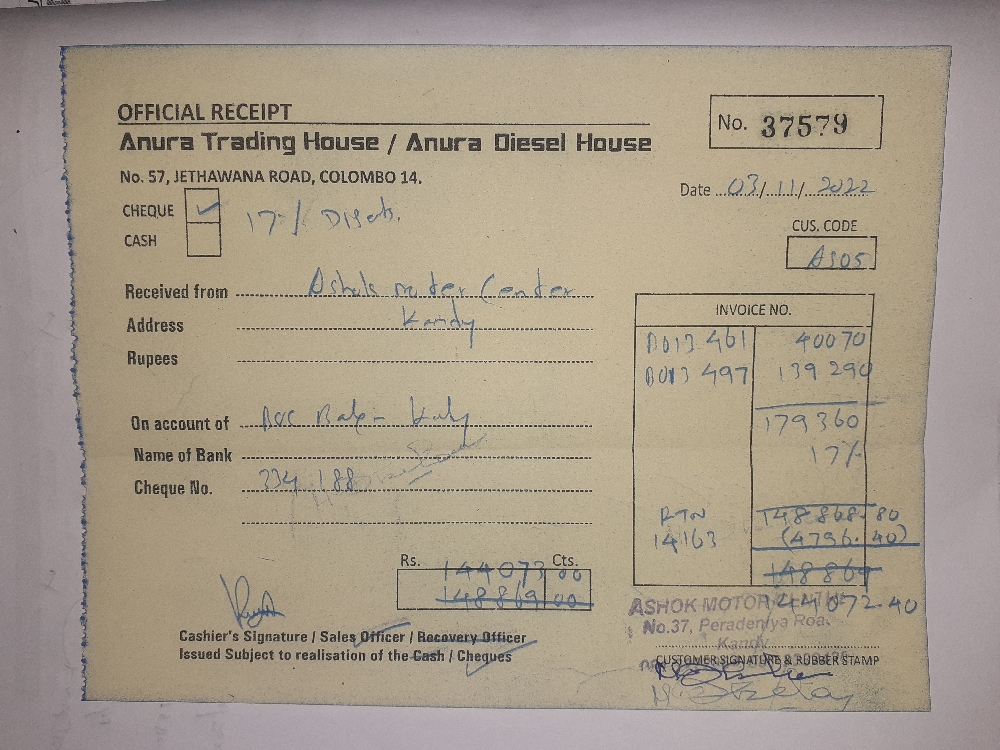 OFFICIAL RECEIPT
Anura Trading House / Anura Diesel House
No. 57, JETHAWANA ROAD, COLOMBO 14.
No. 37579
Date 03/11/2022
CHEQUE ✓ 17%
CASH
CUS. CODE
AS05
Received from Ashok moter Center
Address Kandy
Rupees
On account of
Name of Bank
Cheque No. 334188
INVOICE NO.
B013 461 40070
B013 497 139290
179360
17%
RTN 148868.80
14163 (4796.40)
148869
144072.40
Rs. Cts.
144073 00
148869 00
Cashier's Signature / Sales Officer / Recovery Officer
Issued Subject to realisation of the Cash / Cheques
ASHOK MOTOR
No.37, Peradeniya Road,
Kandy.
CUSTOMER SIGNATURE & RUBBER STAMP